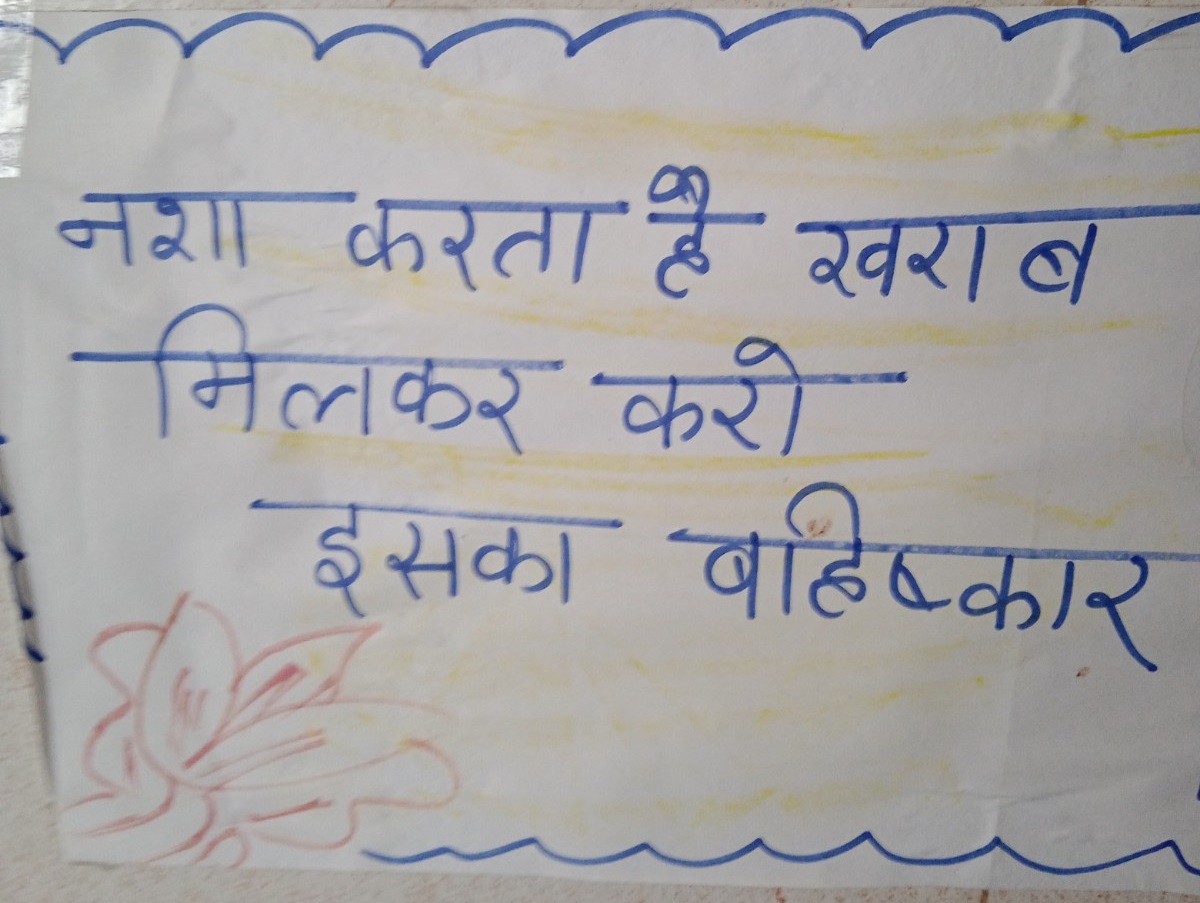 नशा करता है खराब
मिलकर करो
इसका बहिष्कार